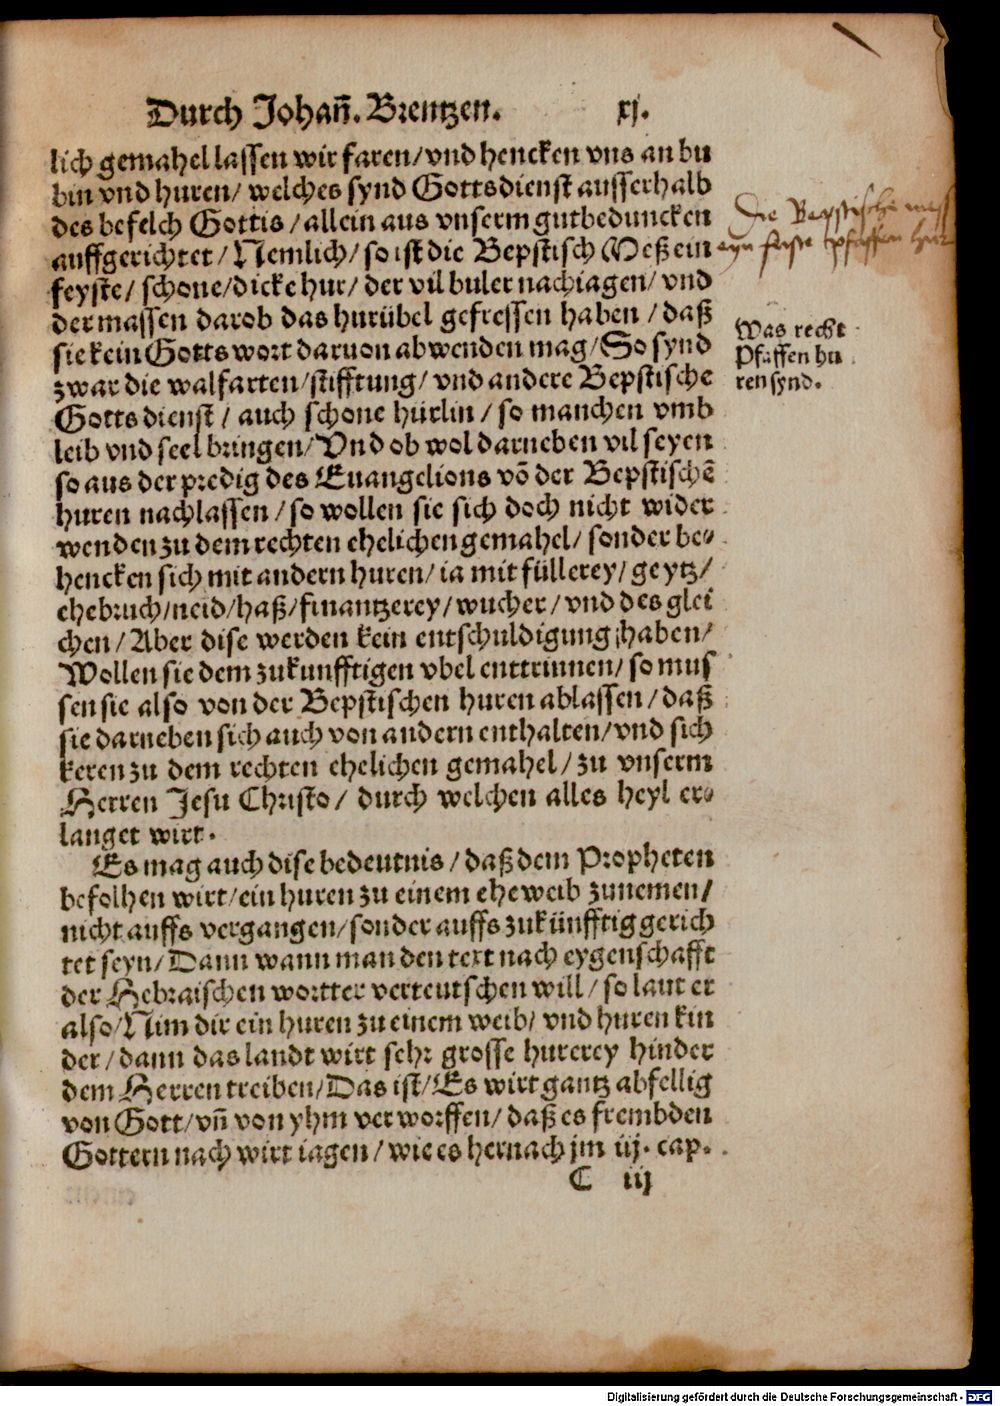 Durch Johañ. Brentzen. xj.
lich gemahel lassen wir faren/ vnd hencken vns an bu
bin vnd huren/ welches synd Gottsdienst ausserhalb
des befelch Gottis/ allein aus vnserm gutbeduncken
auffgerichtet/ Nemlich/ so ist die Bepstisch Meß ein
feyste/ schone/ dicke hur/ der vil buler nachiagen/ vnd
der massen darob das hurübel gefressen haben/ daß
sie kein Gotts wort daruon abwenden mag/ So synd
zwar die walfarten/ stifftung/ vnd andere Bepstische
Gotts dienst/ auch schone hürlin/ so manchen vmb
leib vnd seel bringen/ Vnd ob wol darneben vil seyen
so aus der predig des Euangelions võ der Bepstischẽ
huren nachlassen/ so wollen sie sich doch nicht wider
wenden zu dem rechten ehelichen gemahel/ sonder be-
hencken sich mit andern huren/ ia mit füllerey/ geytz/
ehebruch/ neid/ haß/ finantzerey/ wucher/ vnd des glei
chen/ Aber dise werden kein entschuldigung haben/
Wollen sie dem zukunfftigen vbel enttrinnen/ so mus
sen sie also von der Bepstischen huren ablassen/ daß
sie darneben sich auch von andern enthalten/ vnd sich
keren zu dem rechten ehelichen gemahel/ zu vnserm
Herren Jesu Christo/ durch welchen alles heyl er-
langet wirt.
Es mag auch dise bedeutnis/ daß dem Propheten
befolhen wirt/ ein huren zu einem eheweib zunemen/
nicht auffs vergangen/ sonder auffs zukünfftig gerich
tet seyn/ Dann wann man den text nach eygenschafft
der Hebraischen wortter verteutschen will/ so laut er
also/ Nim dir ein huren zu einem weib/ vnd huren kin
der/ dann das landt wirt sehr grosse hurerey hinder
dem Herren treiben/ Das ist/ Es wirt gantz abfellig
von Gott/ vñ von yhm verworffen/ daß es frembden
Gottern nach wirt iagen/ wie es hernach jm iij. cap.
C iij
Die Bepstische mess
eyn feyste pfaffen hur
Was recht
Pfaffen hu
ren synd.
Digitalisierung gefördert durch die Deutsche Forschungsgemeinschaft - DFG